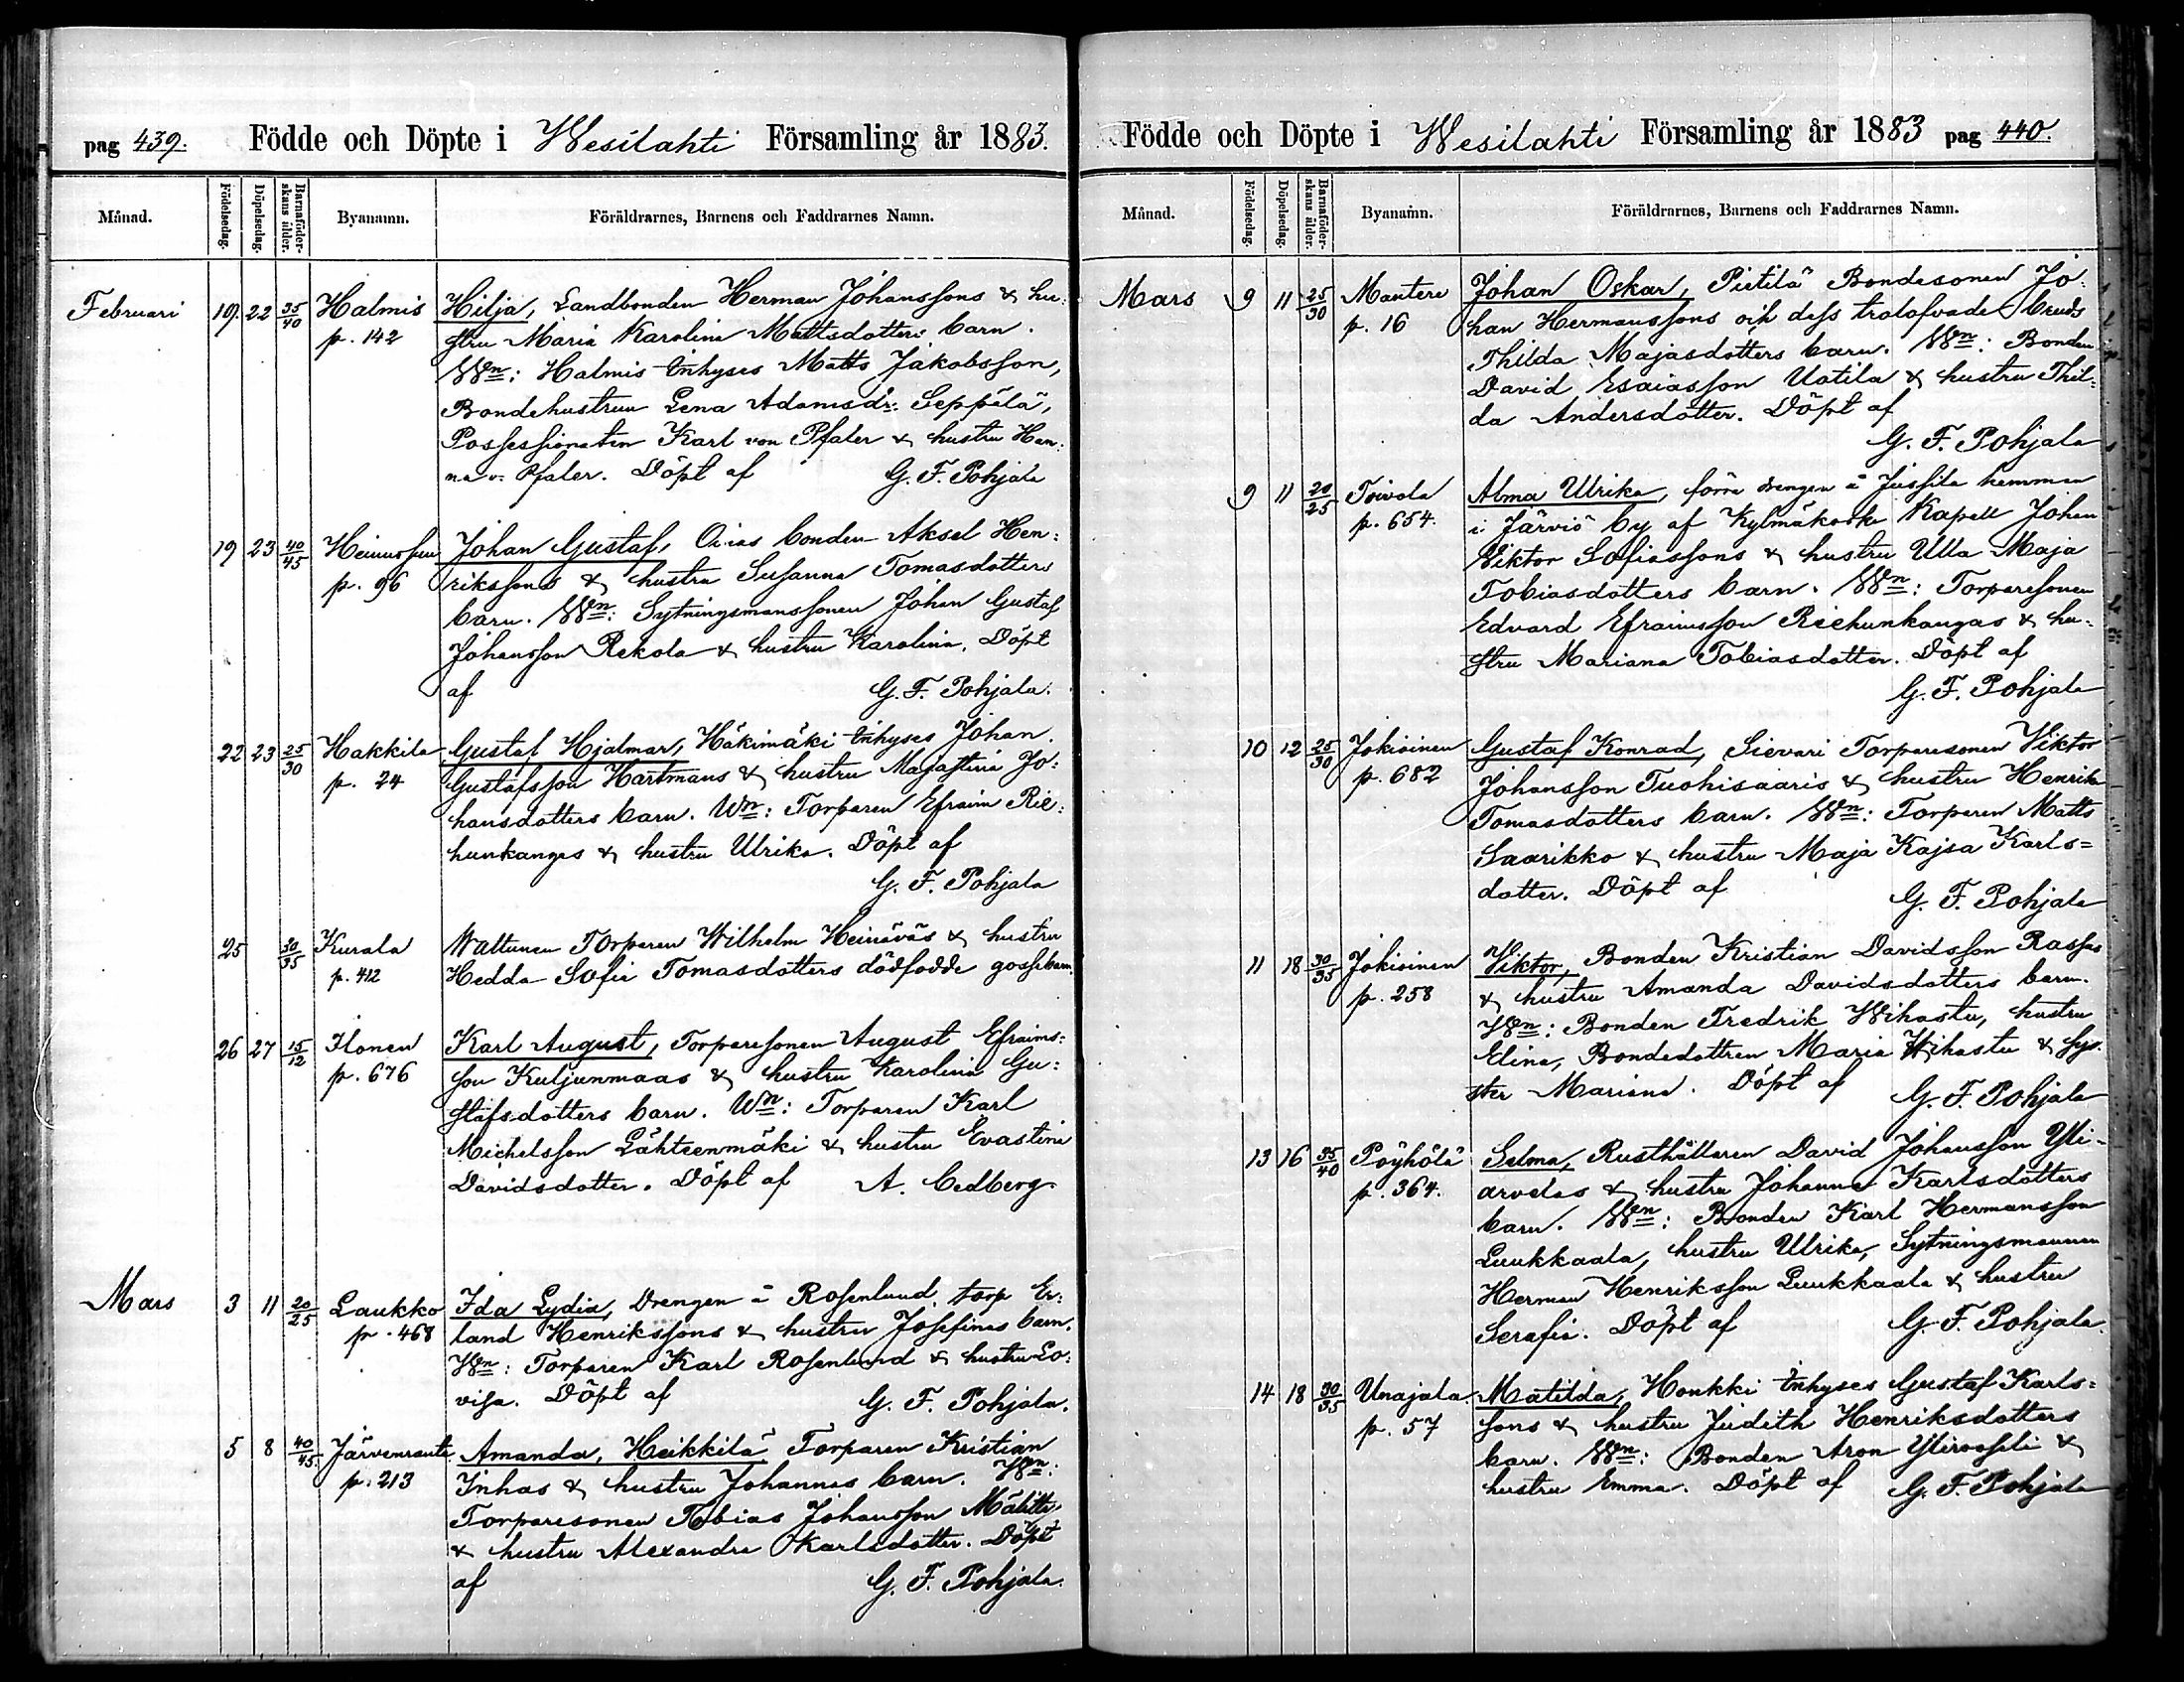 pag 439. Födde och Döpte i Wesilahti Församling år 1883.
Månad. Födelsedag. Döpelsedag. Barnaföderskans ålder. Byanamn. Föräldrarnes, Barnens och Faddrarnes Namn.
Februari 19. 22 35/40 Halmis Hilja, Landbonden Herman Johanssons & hu-
p. 142 stru Maria Karolina Mattsdotters barn.
Wn: Halmis Inhyses Matts Jakobsson,
Bondehustrun Lena Adamsdr: Seppälä,
Possessionaten Karl von Pfaler & hustru Han-
na v. Pfaler. Döpt af G. F. Pohjala
19 23 40/45 Johan Gustaf, bonden Aksel Hen-
p. 96 rikssons & hustru Susanna Tomasdotters
barn. Wn: Sytningsmanssonen Johan Gustaf
Johansson Rekola & hustru Karolina. Döpt
af G. F. Pohjala.
22 23 25/30 Hakkila Gustaf Hjalmar, Häkimäki Inhyses Johan
p. 24 Gustafsson Hartmans & hustru Majastina Jo-
hansdotters barn. Wn: Torparen Efraim Rie-
hunkangas & hustru Ulrika. Döpt af
G. F. Pohjala
25 30/35 Kurala Wattunen Torparen Wilhelm Heinäväs & hustru
p. 412 Hedda Sofia Tomasdotters dödfödde gossebarn.
26 27 15/12 Ilonen Karl August, Torparesonen August Efraims-
p. 676 son Kuljunmaas & hustru Karolina Gu-
stafsdotters barn. Wn: Torparen Karl
Michelsson Lähteenmäki & hustru Evastina
Davidsdotter. Döpt af A. Cedberg
Mars 3 11 20/25 Laukko Ida Lydia, Drengen å Rosenlund torp Er-
p. 468 land Henrikssons & hustru Josefinas barn.
Wn: Torparen Karl Rosenlund & hustru Lo-
visa. Döpt af G. F. Pohjala.
5 8 40/45. Järvenranta Amanda, Heikkilä Torparen Kristian
p. 213 Inhas & hustru Johannas barn. Wn:
Torparesonen Tobias Johansson Mälitti
& hustru Alexandra Karlsdotter. Döpt
af G. F. Pohjala.
Födde och Döpte i Wesilahti Församling år 1883 pag 440.
Månad. Födelsedag. Döpelsedag. Barnaföderskans ålder. Byanamn. Föräldrarnes, Barnens och Faddrarnes Namn.
Mars 9 11 25/30 Mantere Johan Oskar, Pietilä Bondesonen Jo-
p. 16 han Hermanssons och dess trolofvade bruds
Thilda Majasdotters barn. Wn: Bonden
David Esaiasson Uotila & hustru Thil-
da Andersdotter. Döpt af
G. F. Pohjala
9 11 20/25 Toivola Alma Ulrika, förra drengen å Jussila hemman
p. 654. i Järviö by af Kylmäkoski Kapell Johan
Viktor Sofiassons & hustru Ulla Maja
Tobiasdotters barn. Wn: Torparesonen
Edvard Efraimsson Riehunkangas & hu-
stru Mariana Tobiasdotter. Döpt af
G. F. Pohjala
10 12 25/30 Jokioinen Gustaf Konrad, Sievari Torparesonen Viktor
p. 682 Johansson Tuohisaaris & hustru Henrika
Tomasdotters barn. Wn: Torparen Matts
Saarikko & hustru Maja Kajsa Karls=
dotter. Döpt af G. F. Pohjala
11 18 30/35 Jokioinen Viktor, Bonden Kristian Davidsson Rassas
p. 258 & hustru Amanda Davidsdotters barn.
Wn: Bonden Fredrik Wihastu, hustru
Elina, Bondedottren Maria Wihastu & sys-
ter Mariana. Döpt af G. F. Pohjala
13 16 35/40 Pöyhölä Selma, Rusthållaren David Johansson Yli-
p. 364. arvelas & hustru Johanna Karlsdotters
barn. Wn: Bonden Karl Hermansson
Luukkaala, hustru Ulrika, Sytningsmannen
Herman Henriksson Luukkaala & hustru
Serafia. Döpt af G. F. Pohjala.
14 18 30/35 Unajala. Matilda, Honkki Inhyses Gustaf Karls=
p. 57 sons & hustru Judith Henriksdotters
barn. Wn: Bonden Aron &
hustru Emma. Döpt af G. F. Pohjala